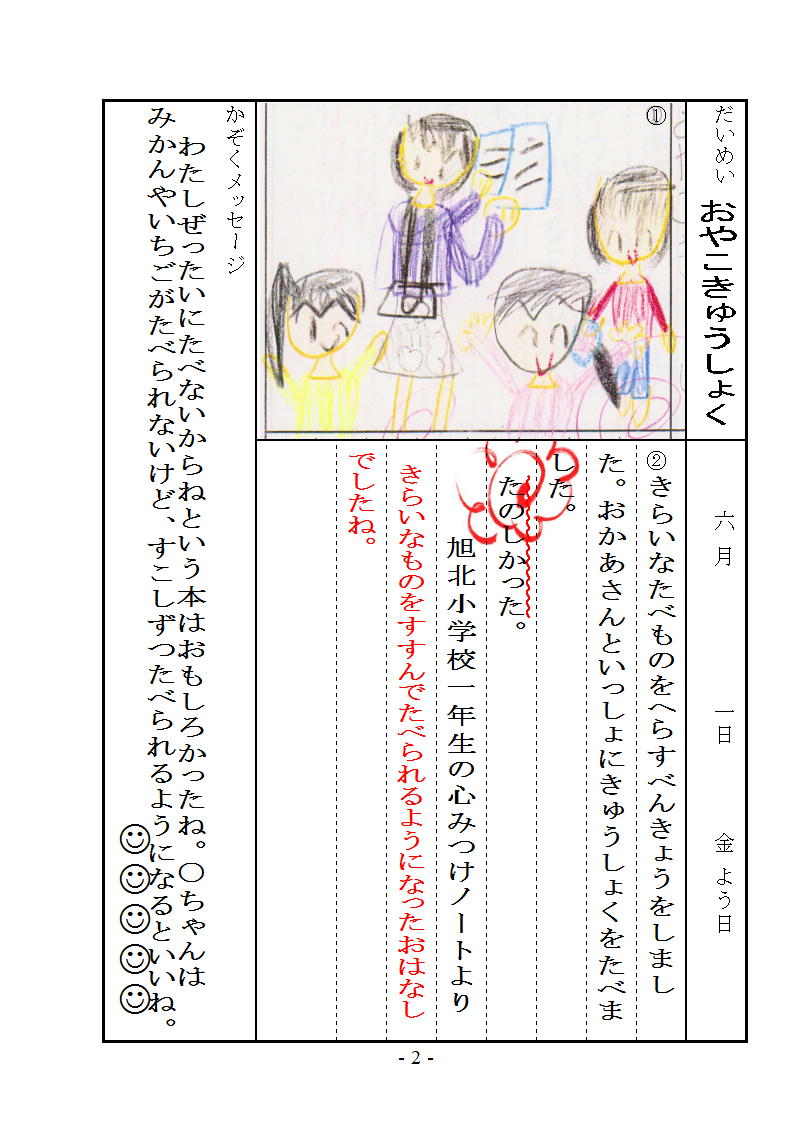 だいめい おやこきゅうしょく
六月 一日 金よう日
①
②きらいなたべものをへらすべんきょうをしまし
た。おかあさんといっしょにきゅうしょくをたべま
した。
たのしかった。
旭北小学校一年生の心みつけノートより
きらいなものをすすんでたべられるようになったおはなし
でしたね。
かぞくメッセージ
わたしぜったいにたべないからねという本はおもしろかったね。〇ちゃんは
みかんやいちごがたべられないけど、すこしずつたべられるようになるといいね。
- 2 -